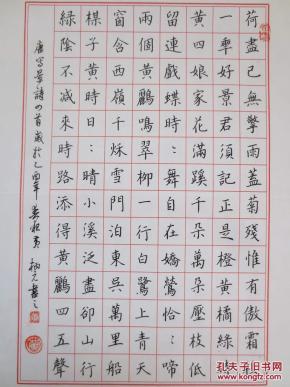 荷盡已無擎雨蓋菊殘惟有傲霜枝
一年好景君須記正是橙黃橘綠時
黃四娘家花滿蹊千朵萬朵壓枝低
留連戲蝶時:舞自在嬌鶯恰:啼
兩個黃鸝鳴翠柳一行白鷺上青天
窗含西嶺千秌雪門泊東吳萬里船
楳子黃時日:晴小溪泛盡卻山行
綠陰不減來時路添得黃鸝四五聲
唐寫景詩四首歲於乙酉年